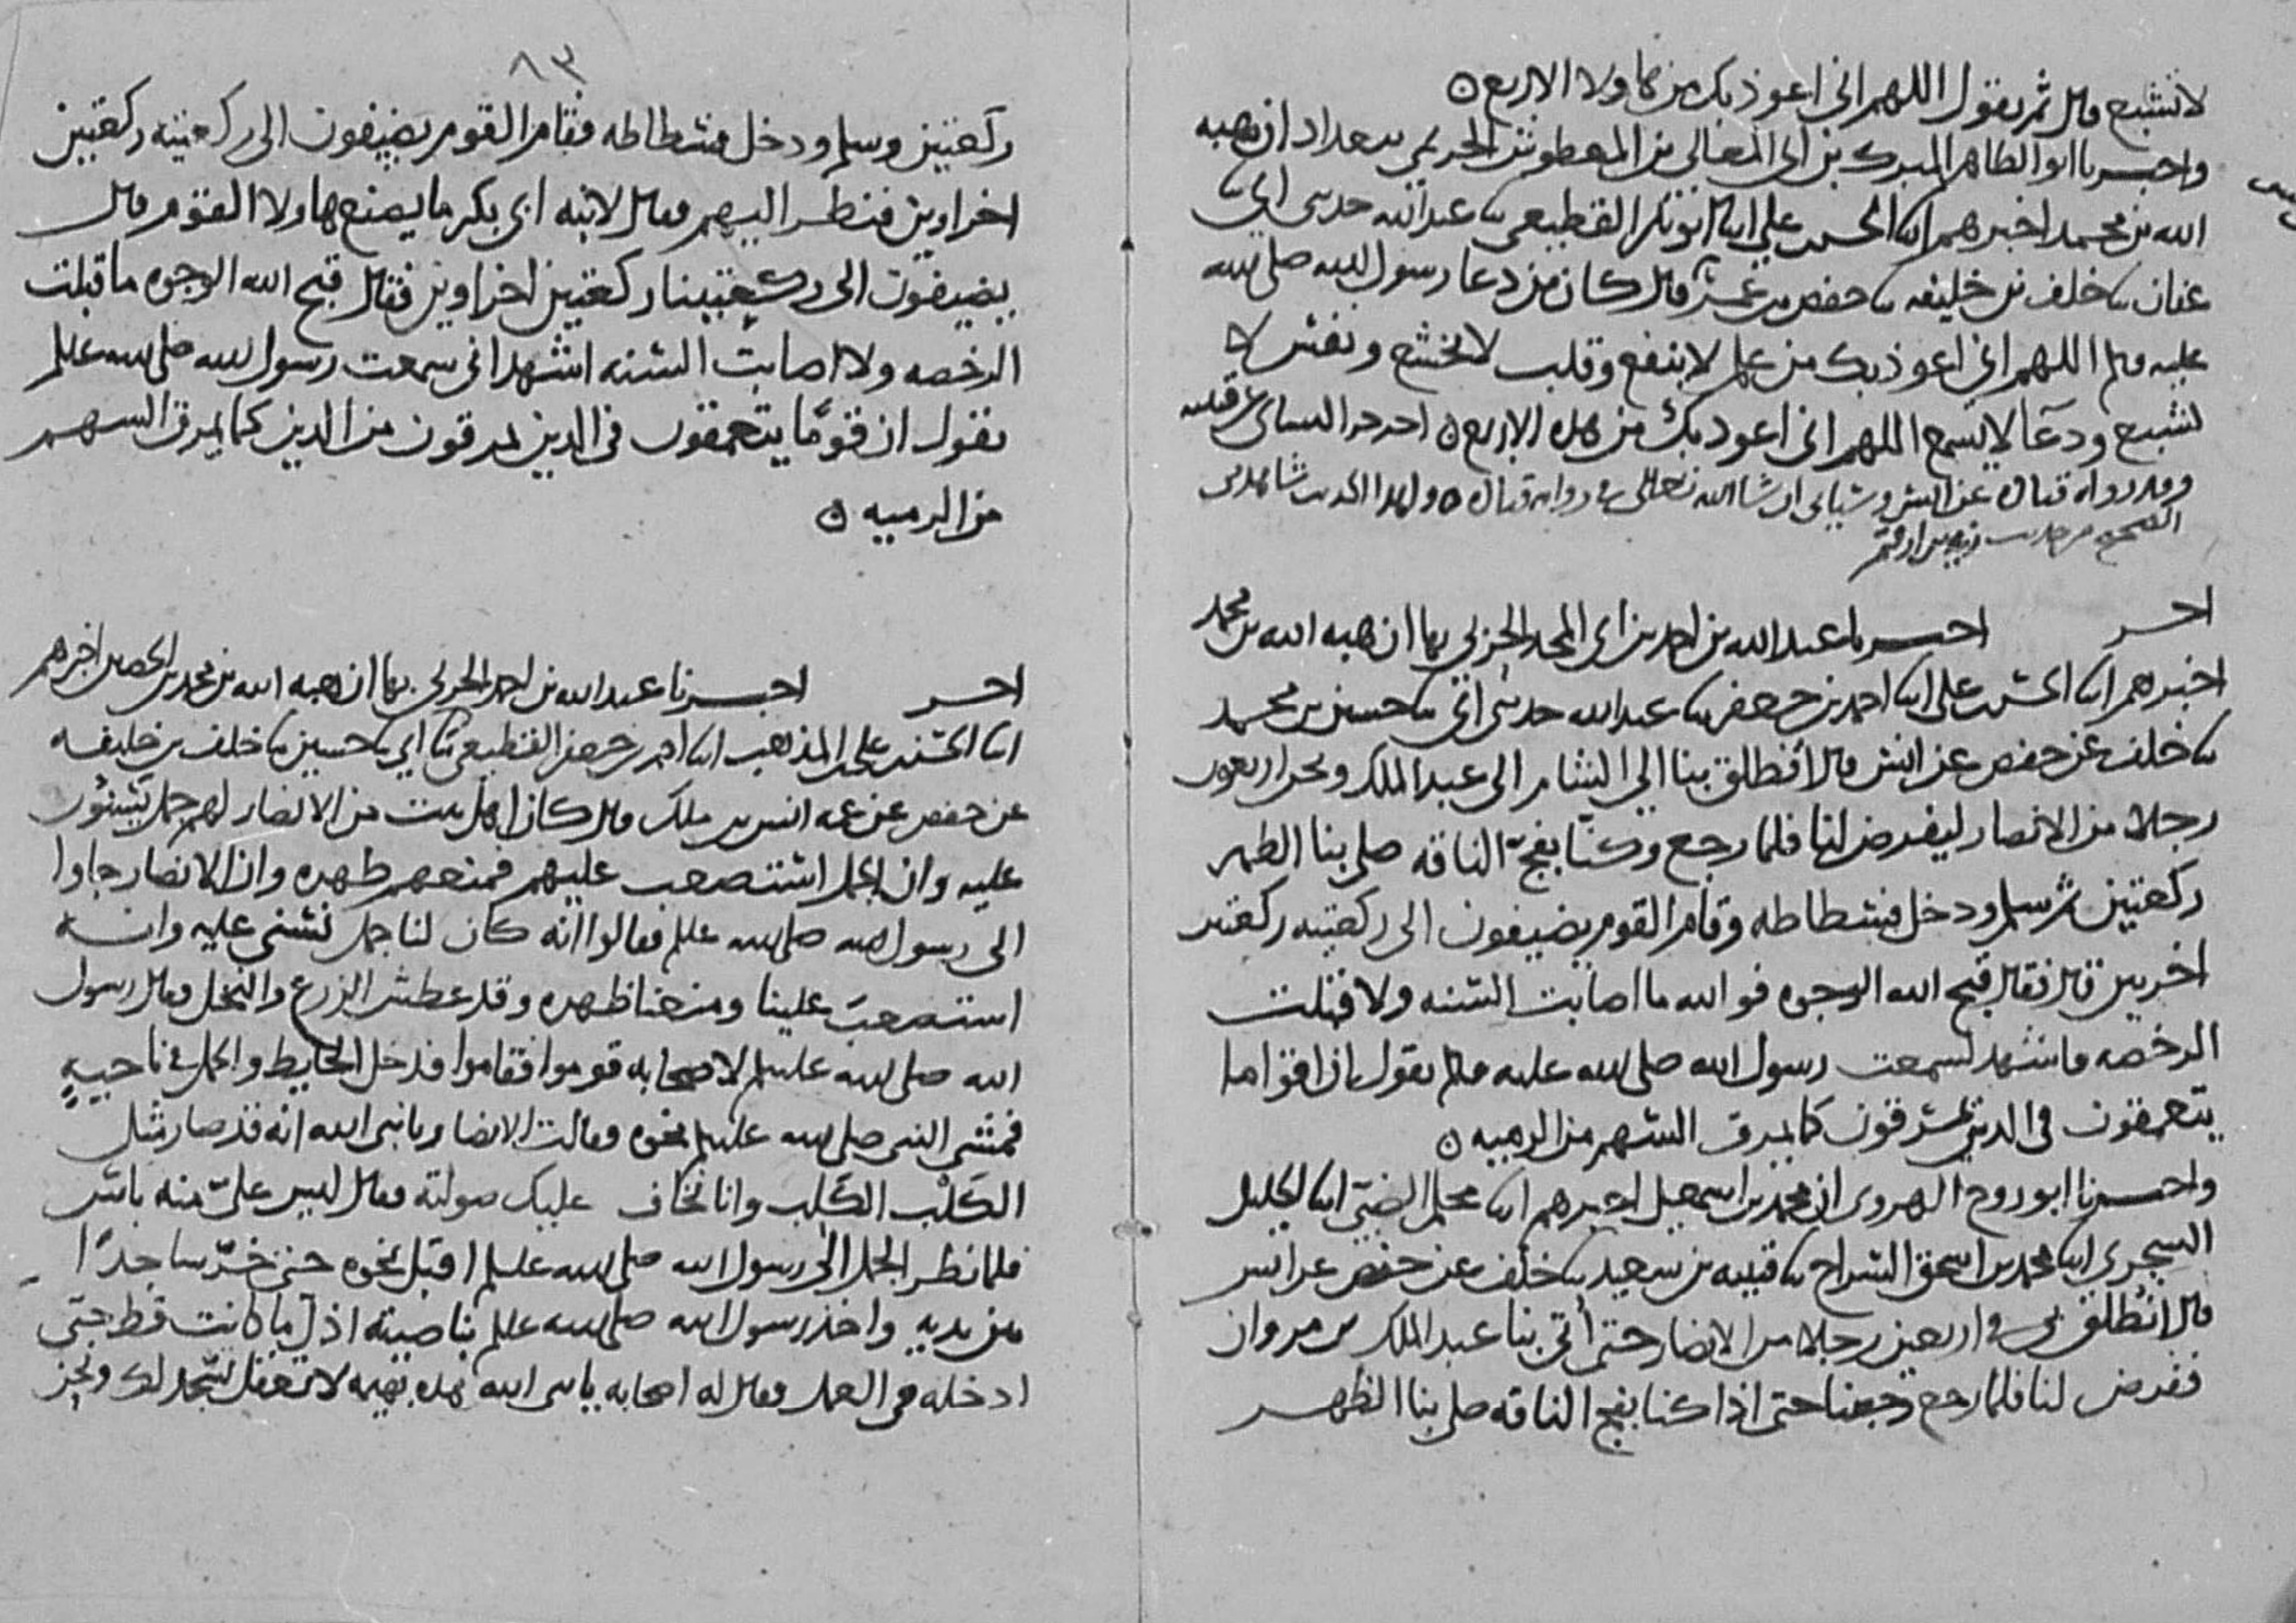 لا تشبع قال ثم يقول اللهم اني اعوذ بك من هاولا الاربع ٥
واخبرنا ابو الطاهر المبرك بن ابي المعالي بن المعطوش الحريمي ببغداد ان هبه
الله بن محمد اخبرهم ابنا الحسن بن علي ابنا ابو بكر القطيعي ثنا عبد الله حدثني ابي ثنا
عفان ثنا خلف بن خليفه ثنا حفص بن عمر قال كان من دعا رسول الله صلى الله
عليه وسلم اللهم اني اعوذ بك من علم لا ينفع وقلب لا يخشع ونفس لا
تشبع ودعآ لا يسمع اللهم اني اعوذ بك من هذه الاربع ٥ اخرجه النسائي عن قتيبه
وقد رواه قتاده عن انس وسياتي ان شا الله تعالى في روايه قتاده ٥ ولهذا الحديث شاهد في
الصحيح من حديث زيد بن ارقم
اخر اخبرنا عبد الله بن احمد بن ابي المجد الحربي بها ان هبه الله بن محمد
اخبرهم ابنا الحسن بن علي ابنا احمد بن جعفر ثنا عبد الله حدثني ابي ثنا حسين بن محمد
ثنا خلف عن حفص عن انس قال انطلق بنا الى الشام الى عبد الملك ونحن اربعون
رجلا من الانصار ليفرض لنا فلما رجع وكنا بفج الناقه صلى بنا الظهر
ركعتين ثم سلم ودخل فسطاطه وقام القوم يضيفون الى ركعتيه ركعتين
اخريين قال فقال قبح الله الوجوه فو الله ما اصابت السنه ولا قبلت
الرخصه فاشهد لسمعت رسول الله صلى الله عليه وسلم يقول ان اقواما
يتعمقون في الدين يمرقون كما يمرق السهم من الرميه ٥
واخبرنا ابو روح الهروي ان محمد بن اسمعيل اخبرهم ابنا محلم الضبي ابنا الخليل
السجزي ابنا محمد بن اسحق السراج ثنا قتيبه بن سعيد ثنا خلف عن حفص عن انس
قال انطلق بي في اربعين رجلا من الانصار حتى أتي بنا عبد الملك بن مروان
ففرض لنا فلما رجع رجعنا حتى اذا كنا بفج الناقه صلى بنا الظهر
٨٣
ركعتين وسلم ودخل فسطاطه فقام القوم يضيفون الى ركعتيه ركعتين
اخراوين فنظر اليهم فقال لابنه ابي بكر ما يصنع هاولا القوم قال
يضيفون الى ركعتينا ركعتين اخراوين فقال قبح الله الوجوه ما قبلت
الرخصه ولا اصابت السنه اشهد اني سمعت رسول الله صلى الله عليه وسلم
يقول ان قومًا يتعمقون في الدين يمرقون من الدين كما يمرق السهم
من الرميه ٥
اخر اخبرنا عبد الله بن احمد الحربي بها ان هبه الله بن محمد بن الحصين اخبرهم
ابنا الحسن بن علي المذهب ابنا احمد بن جعفر القطيعي ثنا ابي ثنا حسين ثنا خلف بن خليفه
عن حفص عن عمه انس بن ملك قال كان اهل بيت من الانصار لهم جمل يسنون
عليه وان الجمل استصعب عليهم فمنعهم ظهره وان الانصار جاوا
الى رسول الله صلى الله عليه وسلم فقالوا انه كان لنا جمل نسني عليه وانه
استصعبَ علينا ومنعنا ظهره وقد عطش الزرع والنخل فقال رسول
الله صلى الله عليه وسلم لاصحابه قوموا فقاموا فدخل الحايط والجمل في ناحيةٍ
فمشى النبي صلى الله عليه وسلم نحوه فقالت الانصار يا نبي الله انه قد صار مثل
الكَلْب الكَلِب وانا نخاف عليك صولته فقال ليس عليّ منه باس
فلما نظر الجمل الى رسول الله صلى الله عليه وسلم اقبل نحوه حتى خرّ ساجدًا
بين يديه واخذ رسول الله صلى الله عليه وسلم بناصيته اذل ما كانت قط حتى
ادخله في العمل فقال له اصحابه يا نبي الله هذه بهيمه لا تعقل تسجد لك ونحن